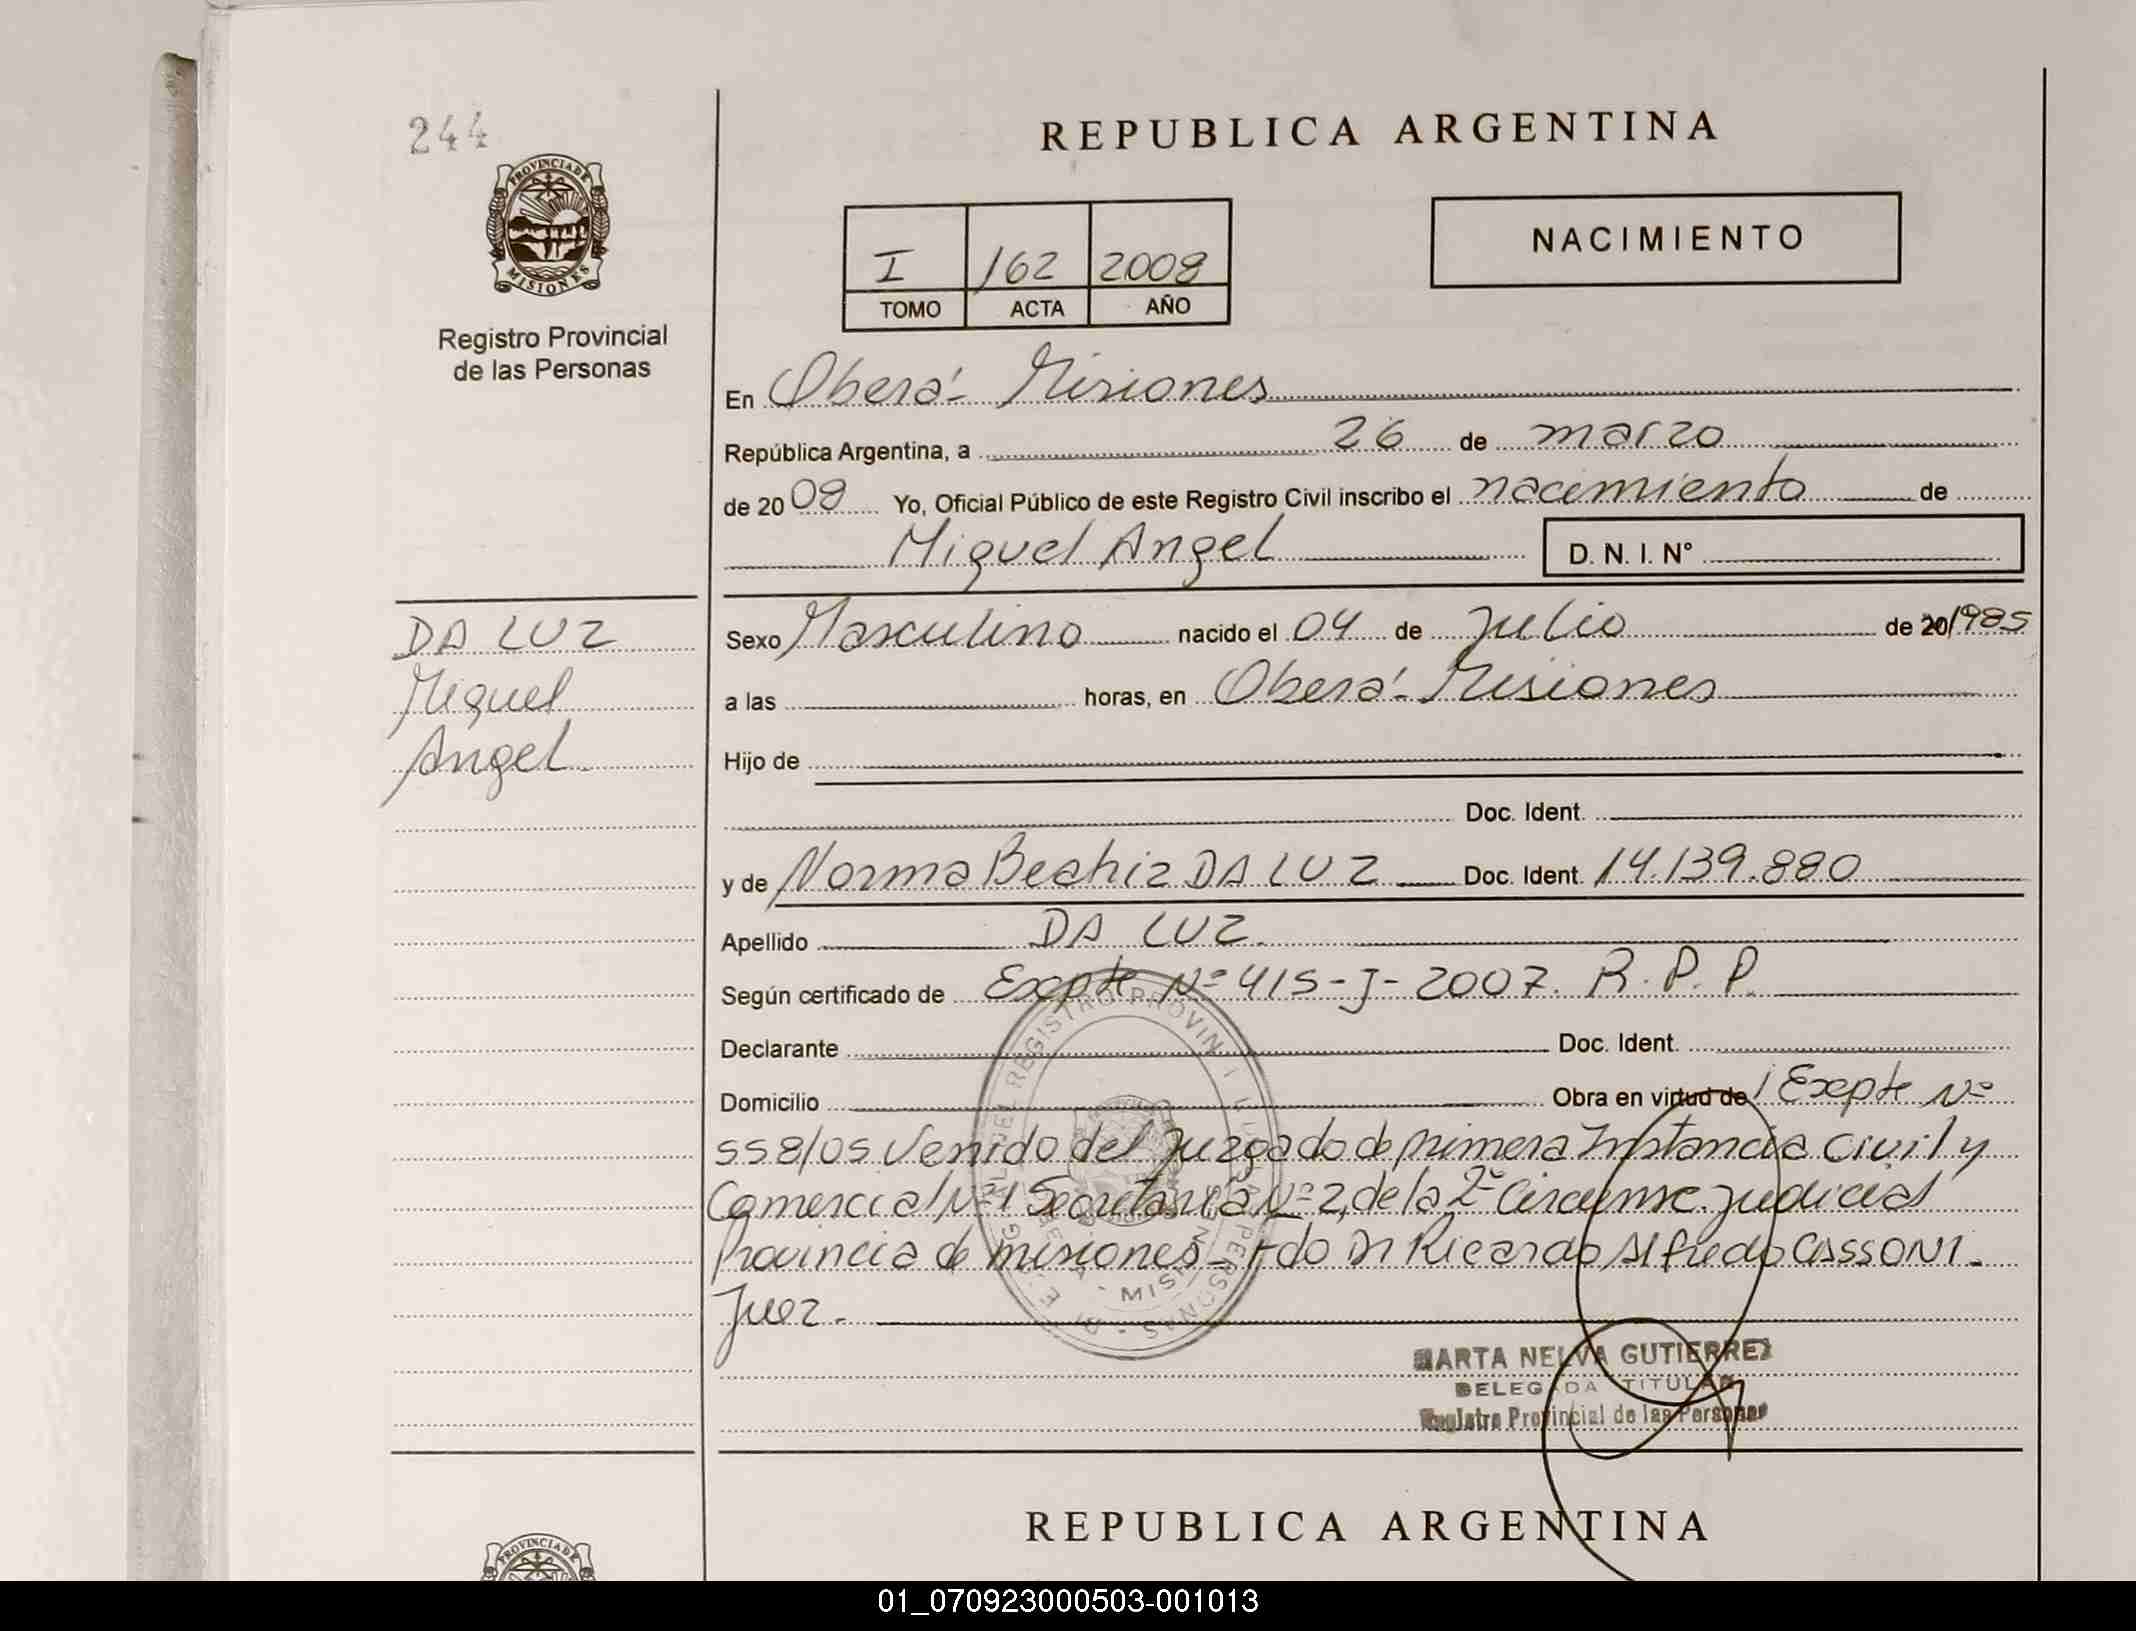 244
PROVINCIA DE
MISIONES
Registro Provincial
de las Personas
REPUBLICA ARGENTINA
I 162 2008
TOMO ACTA AÑO
NACIMIENTO
En Oberá - Misiones
República Argentina, a 26 de marzo
de 2008 Yo, Oficial Público de este Registro Civil inscribo el nacimiento de
Miguel Angel D. N. I. N°
DA LUZ
Miguel
Angel
Sexo Masculino nacido el 04 de Julio de 20 1985
a las horas, en Oberá - Misiones
Hijo de
Doc. Ident.
y de Norma Beatriz DA LUZ Doc. Ident. 14.139.880
Apellido DA LUZ.
Según certificado de Expte Nº 415-J-2007. R.P.P.
Declarante Doc. Ident.
Domicilio Obra en virtud de Expte Nº
558/05 Venido del Juzgado de Primera Instancia Civil y
Comercial Nº 1 Secretaría Nº 2, de la 2º Circunsc. Judicial
Provincia de Misiones - Fdo Dr Ricardo Alfredo CASSONI -
Juez.
MARTA NELVA GUTIERREZ
DELEGADA TITULAR
Registro Provincial de las Personas
REPUBLICA ARGENTINA
PROVINCIA DE
01_070923000503-001013